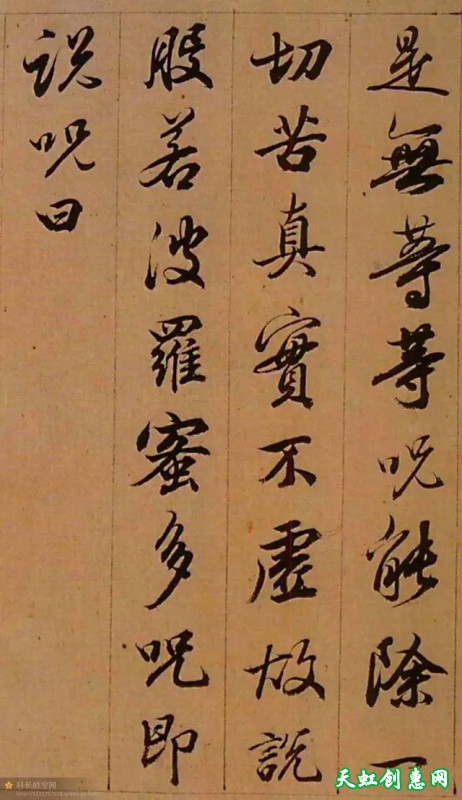 是無等等呪能除一
切苦真實不虛故說
般若波羅蜜多呪即
說呪曰
科长的空间
天虹创惠网